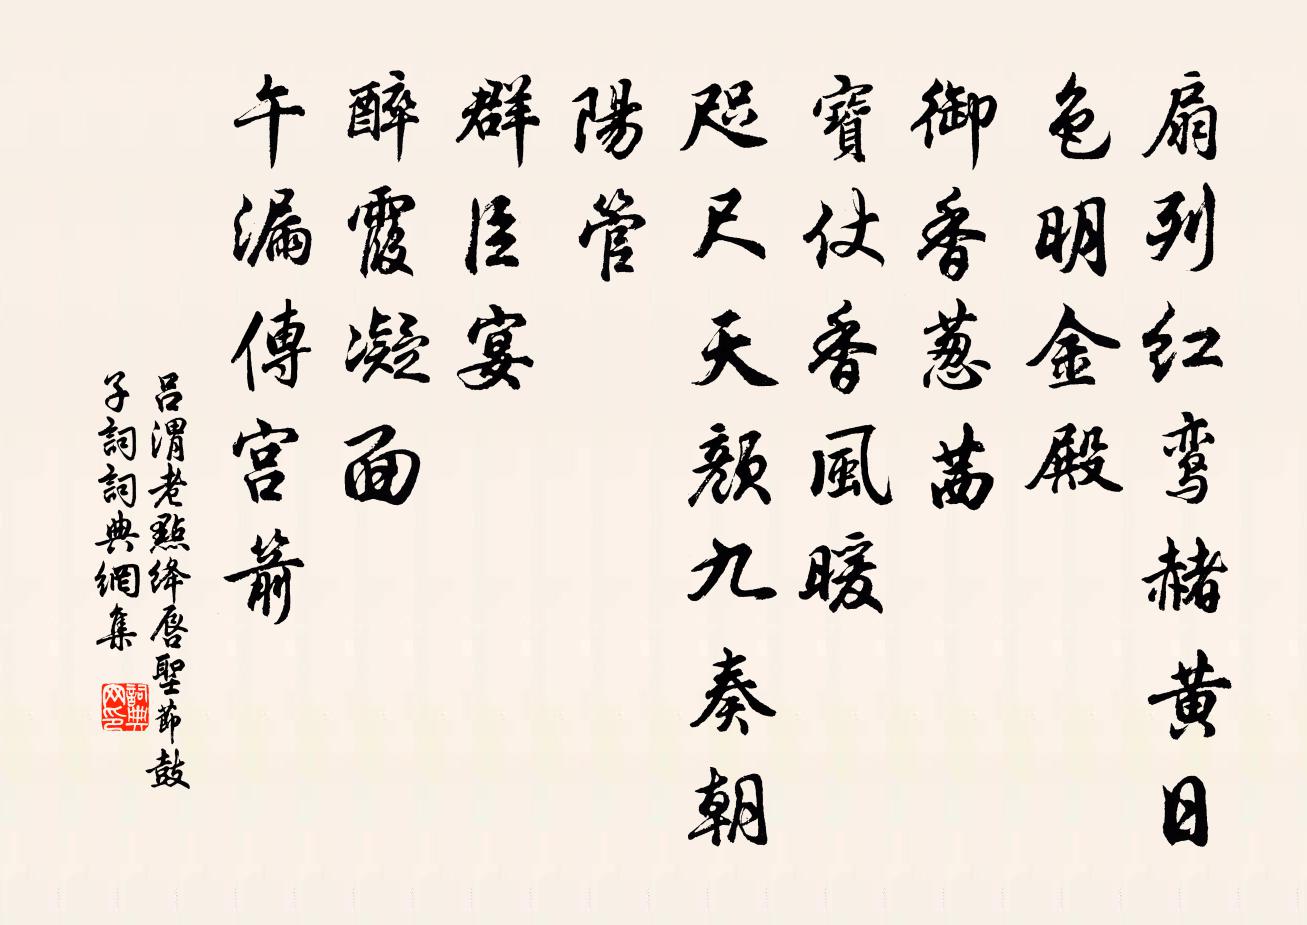 扇列红鸾赭黄日
色明金殿
御香葱茜
寶仗香風暖
咫尺天顏九奏朝
陽管
群臣宴
醉霞凝面
午漏傳宫箭
吕渭老點绛唇聖節鼓
子詞詞典網集
詞典
网印